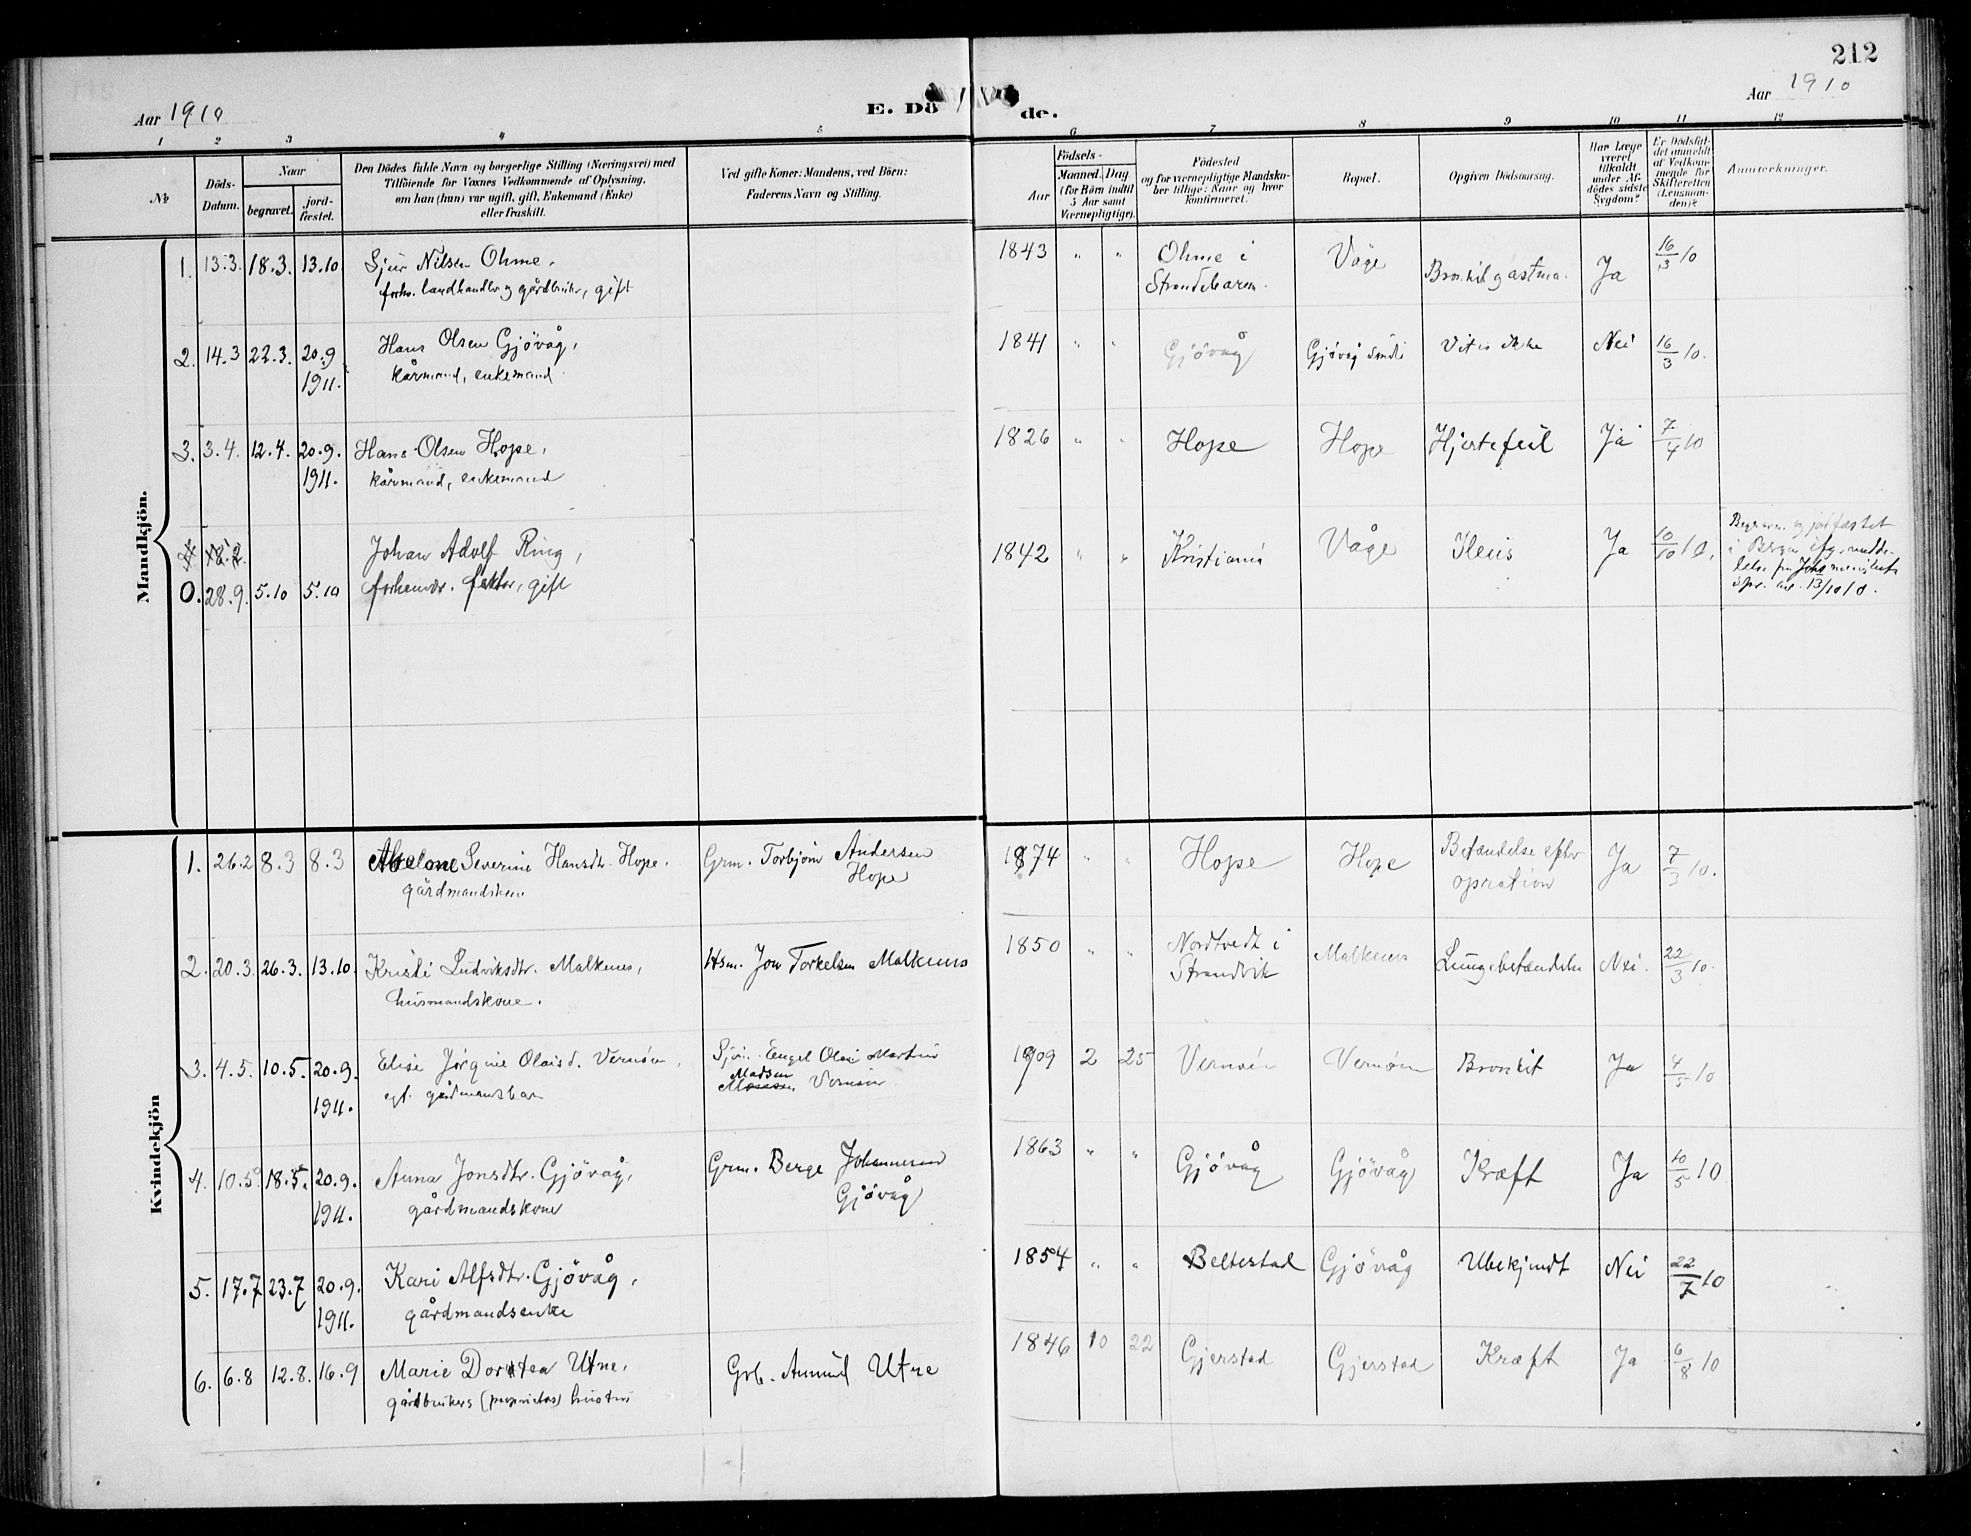 212
Aar 1910
E. Dö de.
Aar 1910
1 2 3 4 5 6 7 8 9 10 11 12
№
Döds-Datum.
Naar
begravet.
jord-fæstet.
Den Dödes fulde Navn og borgerlige Stilling (Næringsvei) med
Tilföiende for Voxnes Vedkommende af Oplysning,
om han (hun) var ugift, gift, Enkemand (Enke)
eller fraskilt.
Ved gifte Koner: Mandens, ved Börn:
Faderens Navn og Stilling.
Födsels-
Aar
Maaned. Dag
(for Börn indtil
5 Aar samt
Værnepligtige).
Födested
og for værnepligtige Mandska-
ber tillige: Naar og hvor
konfirmeret.
Bopæl.
Opgiven Dödsaarsag.
Har Læge
været
tilkaldt
under Af-
dödes sidste
Sygdom?
Er Dödsfal-
det anmeldt
af Vedkom-
mende for
Skifteretten
(Lensman-
den)?
Anmerkninger.
Mandkjön.
1. 13.3. 18.3. 13.10 Sjur Nilsen Ohme, 1843 " " Ohme i Våge Bronkit og astma. Ja 16/3 10
forhv. landhandler og gårdbruker, gift Strandebarm.
2. 14.3 22.3. 20.9 Hans Olsen Gjövåg, 1841 " " Gjövåg Gjövåg Vites ikke Nei 16/3 10.
1911. kårmand, enkemand
3. 3.4. 12.4. 20.9. Hans Olsen Hope, 1826 " " Hope Hope Hjertefeil Ja 7/4 10
1911. kårmand, enkemand
Johan Adolf Ring, 1842 " " Kristiania Våge Ileus Ja 10/10 10.
0. 28.9. 5.10 5.10 forhenv. faktor, gift
Begraven og jordfæstet
i Bergen ifg. medde-
13/10 10.
Kvindekjön
1. 26.2 8.3 8.3 Abelone Severine Hansdtr. Hope. Grm. Torbjörn Andersen 1874 " " Hope Hope Betændelse efter Ja 7/3 10.
gårdmandskone Hope operation
2. 20.3. 26.3. 13.10. Kristi Ludviksdtr. Malkenes, Hsm. Jon Torkelsen Malkenes 1850 " " Nordtvedt i Malkenes Lungebetændelse Nei. 22/3 10.
husmandskone. Strandvik
3. 4.5. 10.5. 20.9. Elise Jörgine Olaisd. Vernöen, Engel Olai Martin 1909 2 25 Vernöen Vernöen Bronkit Ja 4/5 10
1911. Madsen Vernöen
4. 10.5 18.5. 20.9. Anna Jonsdtr. Gjövåg, Grm. Berge Johannessen 1863 " " Gjövåg Gjövåg Kræft Ja 10/5 10
1911. gårdmandskone Gjövåg
5. 17.7 23.7 20.9. Kari Alfsdtr. Gjövåg, 1854 " " Beltestad Gjövåg Ubekjendt Nei 22/7 10
1911. gårdmandsenke
6. 6.8 12.8. 16.9 Marie Dortea Utne, Grb. Utne 1846 10 22 Gjerstad Gjerstad Kræft Ja 6/8 10
gårdbrukers (proprietær) hustru